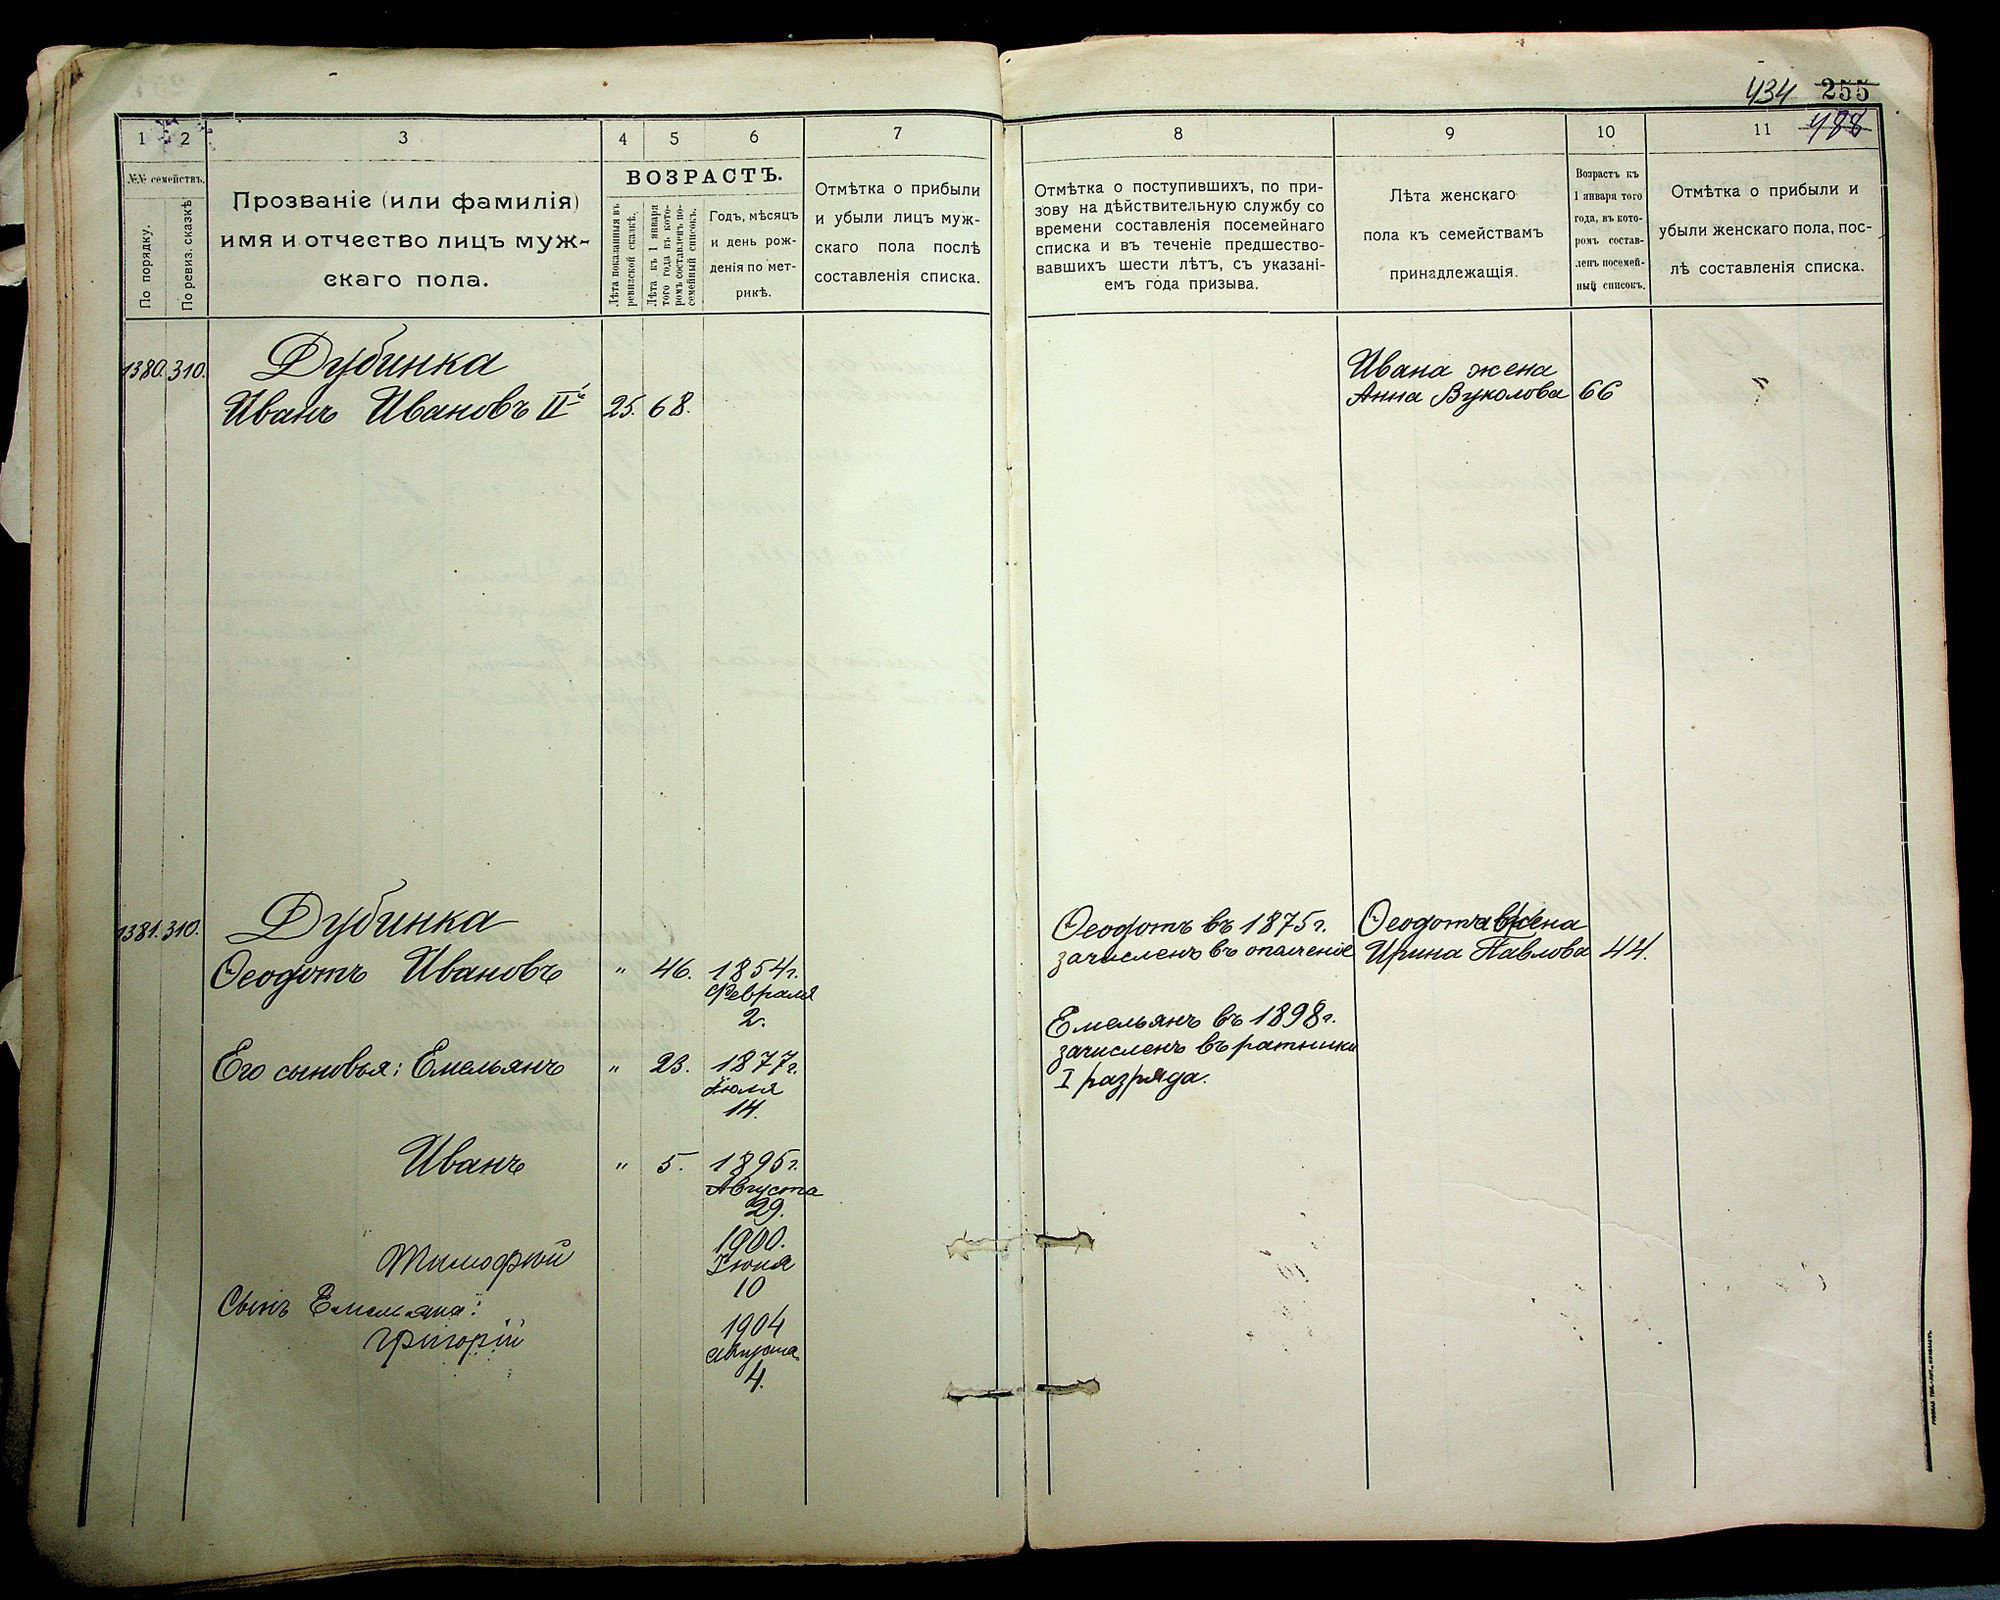 434 255
488
1
2
3
4
5
6
7
8
9
10
11
№№ семействъ.
По порядку.
По ревиз. сказкѣ
Прозваніе (или фамилія)
имя и отчество лицъ муж-
скаго пола.
ВОЗРАСТЪ.
Лѣта показанныя въ
ревизской сказкѣ.
Лѣта къ 1 января
того года въ кото-
ромъ составленъ по-
семейный списокъ.
Годъ, мѣсяцъ
и день рож-
денія по мет-
рикѣ.
Отмѣтка о прибыли
и убыли лицъ муж-
скаго пола послѣ
составленія списка.
Отмѣтка о поступившихъ, по при-
зову на дѣйствительную службу со
времени составленія посемейнаго
списка и въ теченіе предшество-
вавшихъ шести лѣтъ, съ указані-
емъ года призыва.
Лѣта женскаго
пола къ семействамъ
принадлежащія.
Возрастъ къ
1 января того
года, въ кото-
ромъ состав-
ленъ посемей-
ный списокъ.
Отмѣтка о прибыли и
убыли женскаго пола, пос-
лѣ составленія списка.
1380. 310. Дубинка
Иванъ Ивановъ IIй 25. 68.
Ивана жена
Анна Вуколова 66
1381. 310. Дубинка
Ѳеодотъ Ивановъ " 46. 1854г.
Февраля
2.
Его сыновья: Емельянъ " 23. 1877г.
Іюля
14.
Иванъ " 5. 1895г.
Августа
29.
Тимофѣй 1900.
Іюня
10
Сынъ Емельяна:
Григорій 1904
Августа
4.
Ѳеодотъ въ 1875г.
зачисленъ въ ополченіе
Емельянъ въ 1898г.
зачисленъ въ ратники
I разряда.
Ѳеодота жена
Ирина Павлова 44.